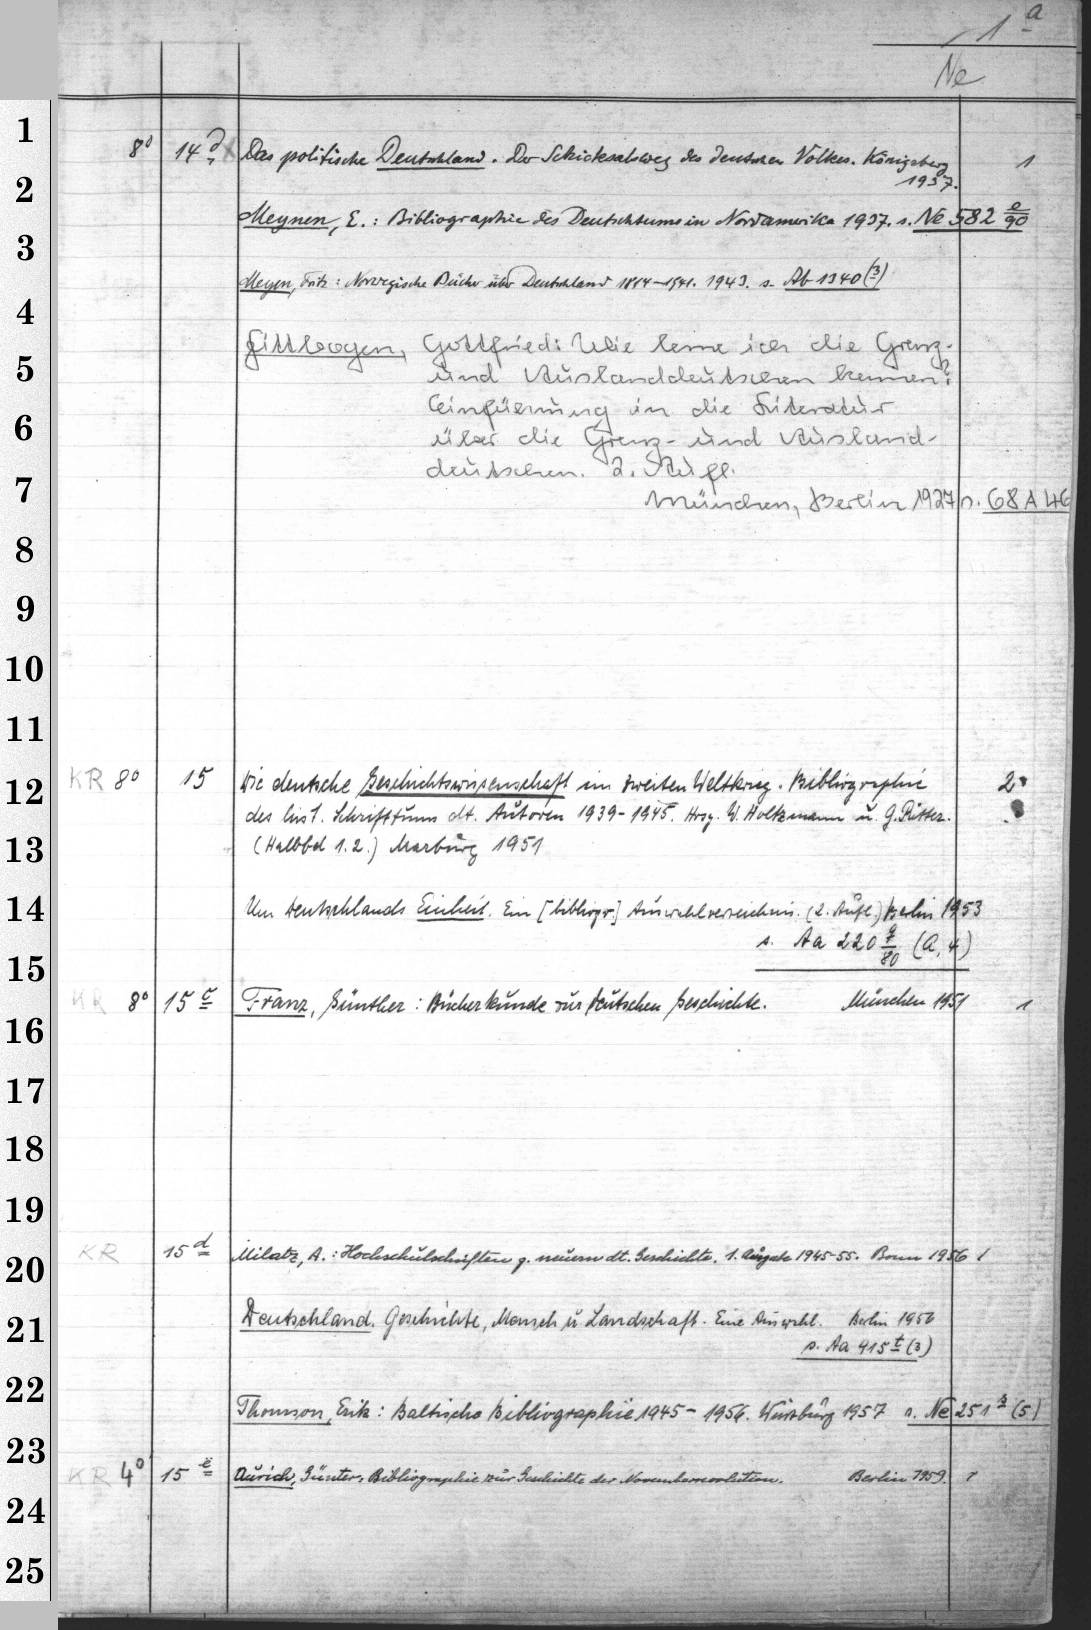 1 a
Ne
1
8° 14 d Das politische Deutschland. Der Schicksalsweg des deutschen Volkes. Königsberg 1
1937.
2
Meynen, E.: Bibliographie des Deutschtums in Nordamerika 1937. s. Ne 582 e/90
3
Meyen, Fritz: Norwegische Bücher über Deutschland 1814-1941. 1943. s. Ab 1340 (3)
4
Fittbogen, Gottfried: Wie lerne ich die Grenz-
5
und Auslanddeutschen kennen?
Einführung in die Literatur
6
über die Grenz- und Ausland-
deutschen. 2. Aufl.
7
München, Berlin 1927 s. 68 A 46
8
9
10
11
12
KR 8° 15 Die deutsche Geschichtswissenschaft im zweiten Weltkrieg. Bibliographie 2
des hist. Schrifttums dt. Autoren 1939-1945. Hrsg. W. Holtzmann u. G. Ritter.
13
(Halbbd 1.2.) Marburg 1951
14
Um Deutschlands Einheit. Ein [bibliogr.] Auswahlverzeichnis. (2. Aufl.) Berlin 1953
s. Aa 220 (a, 4)
15
KR 8° 15 c Franz, Günther: Bücherkunde zur deutschen Geschichte. München 1951 1
16
17
18
19
KR 15 d Milatz, A.: Hochschulschriften z. neuern dt. Geschichte. 1. Ausgabe 1945-55. Bonn 1956 1
20
21
Deutschland. Geschichte, Mensch u Landschaft. Eine Auswahl. Berlin 1956
s. Aa 415 t (3)
22
Thomson, Erik: Baltische Bibliographie 1945-1956. Würzburg 1957 s. Ne 251 (5)
23
KR 4° 15 e Aurich, Günter: Bibliographie zur Geschichte der Novemberrevolution. Berlin 1959. 1
24
25